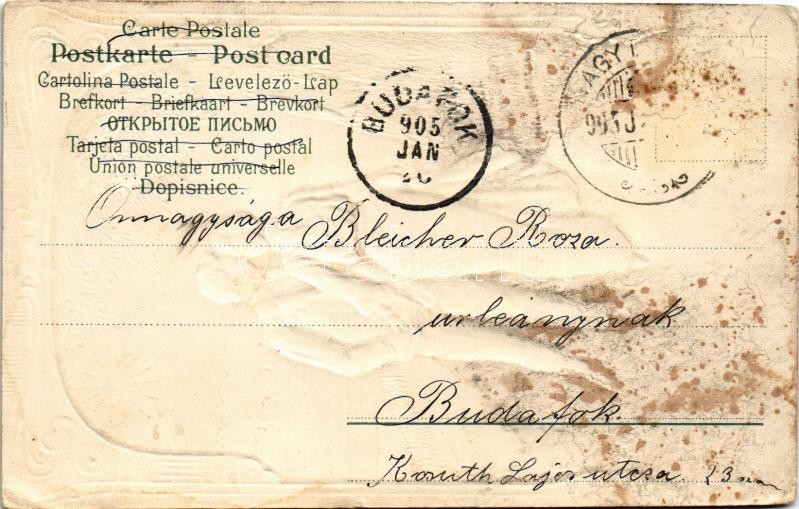 Carte Postale
Postkarte - Post card
Cartolina Postale - Levelező-Lap
Brefkort - Briefkaart - Brevkort
ОТКРЫТОЕ ПИСЬМО
Tarjeta postal - Carto postal
Union postale universelle
Dopisnice.
BUDAFOK
905
JAN
NAGY
905 J
Onnagysága Bleicher Roza.
urleánynak
Budafok.
Kosuth Lajos utcza. 23